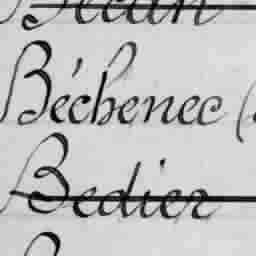 Béchenec (
Bedier